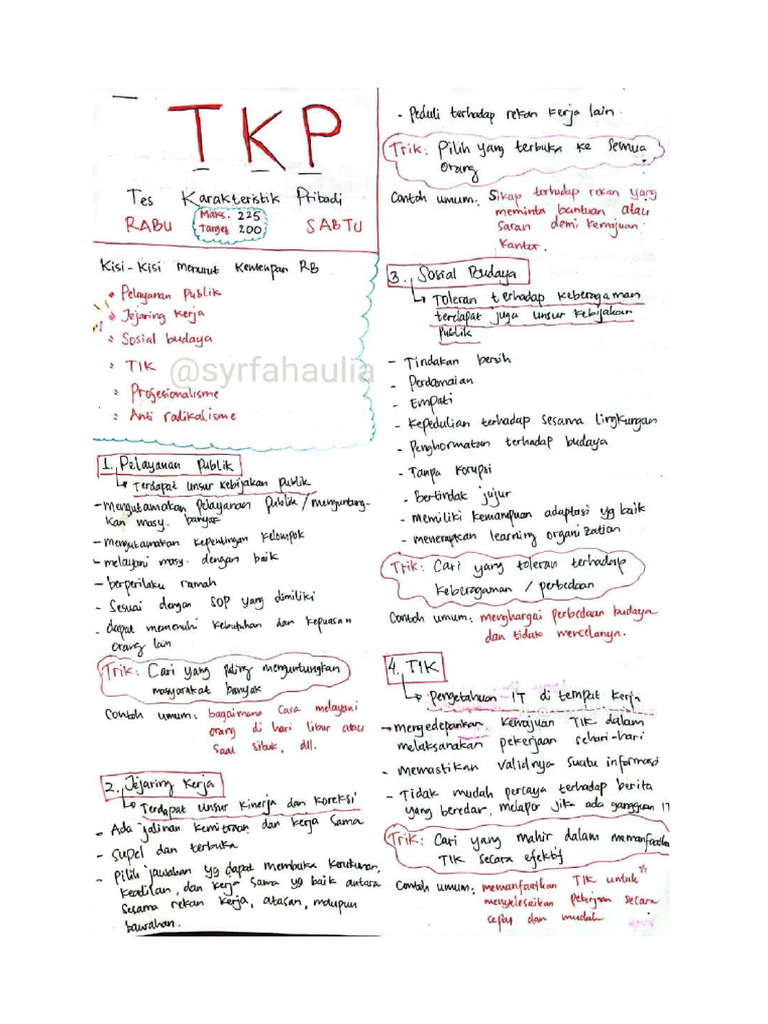 TKP
Tes Karakteristik Pribadi
RABU
Maks. 225
Target 200
SABTU
Kisi-Kisi menurut Kemenpan RB
Pelayanan Publik
Jejaring Kerja
Sosial budaya
TIK
Profesionalisme
Anti radikalisme
@syrfahaulia
1. Pelayanan Publik
Terdapat unsur kebijakan publik
- mengutamakan pelayanan publik / menguntung-
kan masy. banyak
- mengutamakan kepentingan kelompok
- melayani masy. dengan baik
- berperilaku ramah
- Sesuai dengan SOP yang dimiliki
- dapat memenuhi kebutuhan dan kepuasan
orang lain
Trik: Cari yang paling menguntungkan
masyarakat banyak
Contoh umum: bagaimana cara melayani
orang di hari libur atau
saat sibuk, dll.
2. Jejaring Kerja
Terdapat unsur kinerja dan koreksi
- Ada jalinan kemitraan dan kerja sama
- Supel dan terbuka
- Pilih jawaban yg dapat membuka kerukunan,
keadilan, dan kerja sama yg baik antara
sesama rekan kerja, atasan, maupun
bawahan.
- Peduli terhadap rekan kerja lain.
Trik: Pilih yang terbuka ke semua
orang
Contoh umum: Sikap terhadap rekan yang
meminta bantuan atau
saran demi kemajuan
kantor.
3. Sosial Budaya
Toleran terhadap keberagaman
terdapat juga unsur kebijakan
publik
- Tindakan bersih
- Perdamaian
- Empati
- Kepedulian terhadap sesama lingkungan
- Penghormatan terhadap budaya
- Tanpa korupsi
- Bertindak jujur
- memiliki kemampuan adaptasi yg baik
- menerapkan learning organization
Trik: Cari yang toleran terhadap
keberagaman / perbedaan
Contoh umum: menghargai perbedaan budaya
dan tidak mencelanya.
4. TIK
Pengetahuan IT di tempat kerja
- mengedepankan kemajuan TIK dalam
melaksanakan pekerjaan sehari-hari
- memastikan validnya suatu informasi
- Tidak mudah percaya terhadap berita
yang beredar, melapor jika ada gangguan IT
Trik: Cari yang mahir dalam memanfaatkan
TIK secara efektif
Contoh umum: memanfaatkan TIK untuk
menyelesaikan pekerjaan secara
cepat dan mudah